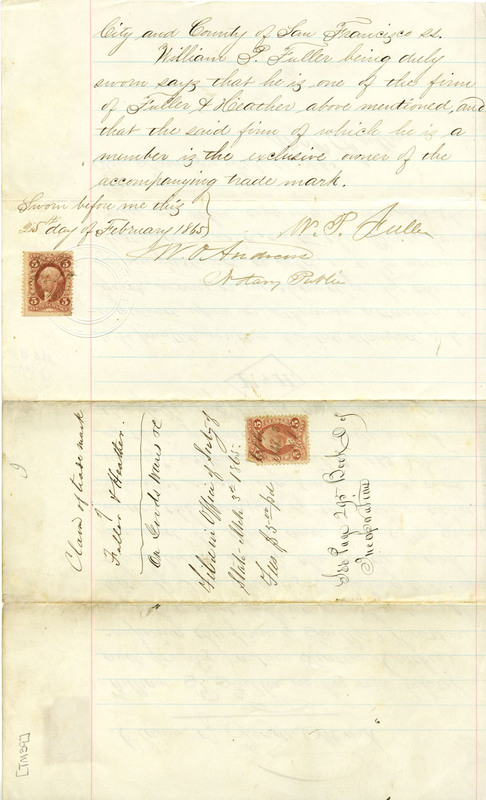 City and County of San Francisco ss.
William P. Fuller being duly
sworn says that he is one of the firm
of Fuller & Heather above mentioned, and
that the said firm of which he is a
member is the exclusive owner of the
accompanying trade mark.
Sworn before me this
25th day of February 1865
W. P. Fuller
W. O. Andrews
Notary Public
5 5
Claim of trade mark
of
Fuller & Heather.
On Goods Wares &c
Filed in Office of Secty of
State Mch 3d 1865.
Fees $5.00 pd
5 5
See Page 295 Book D of
Incorporations
[TM39]